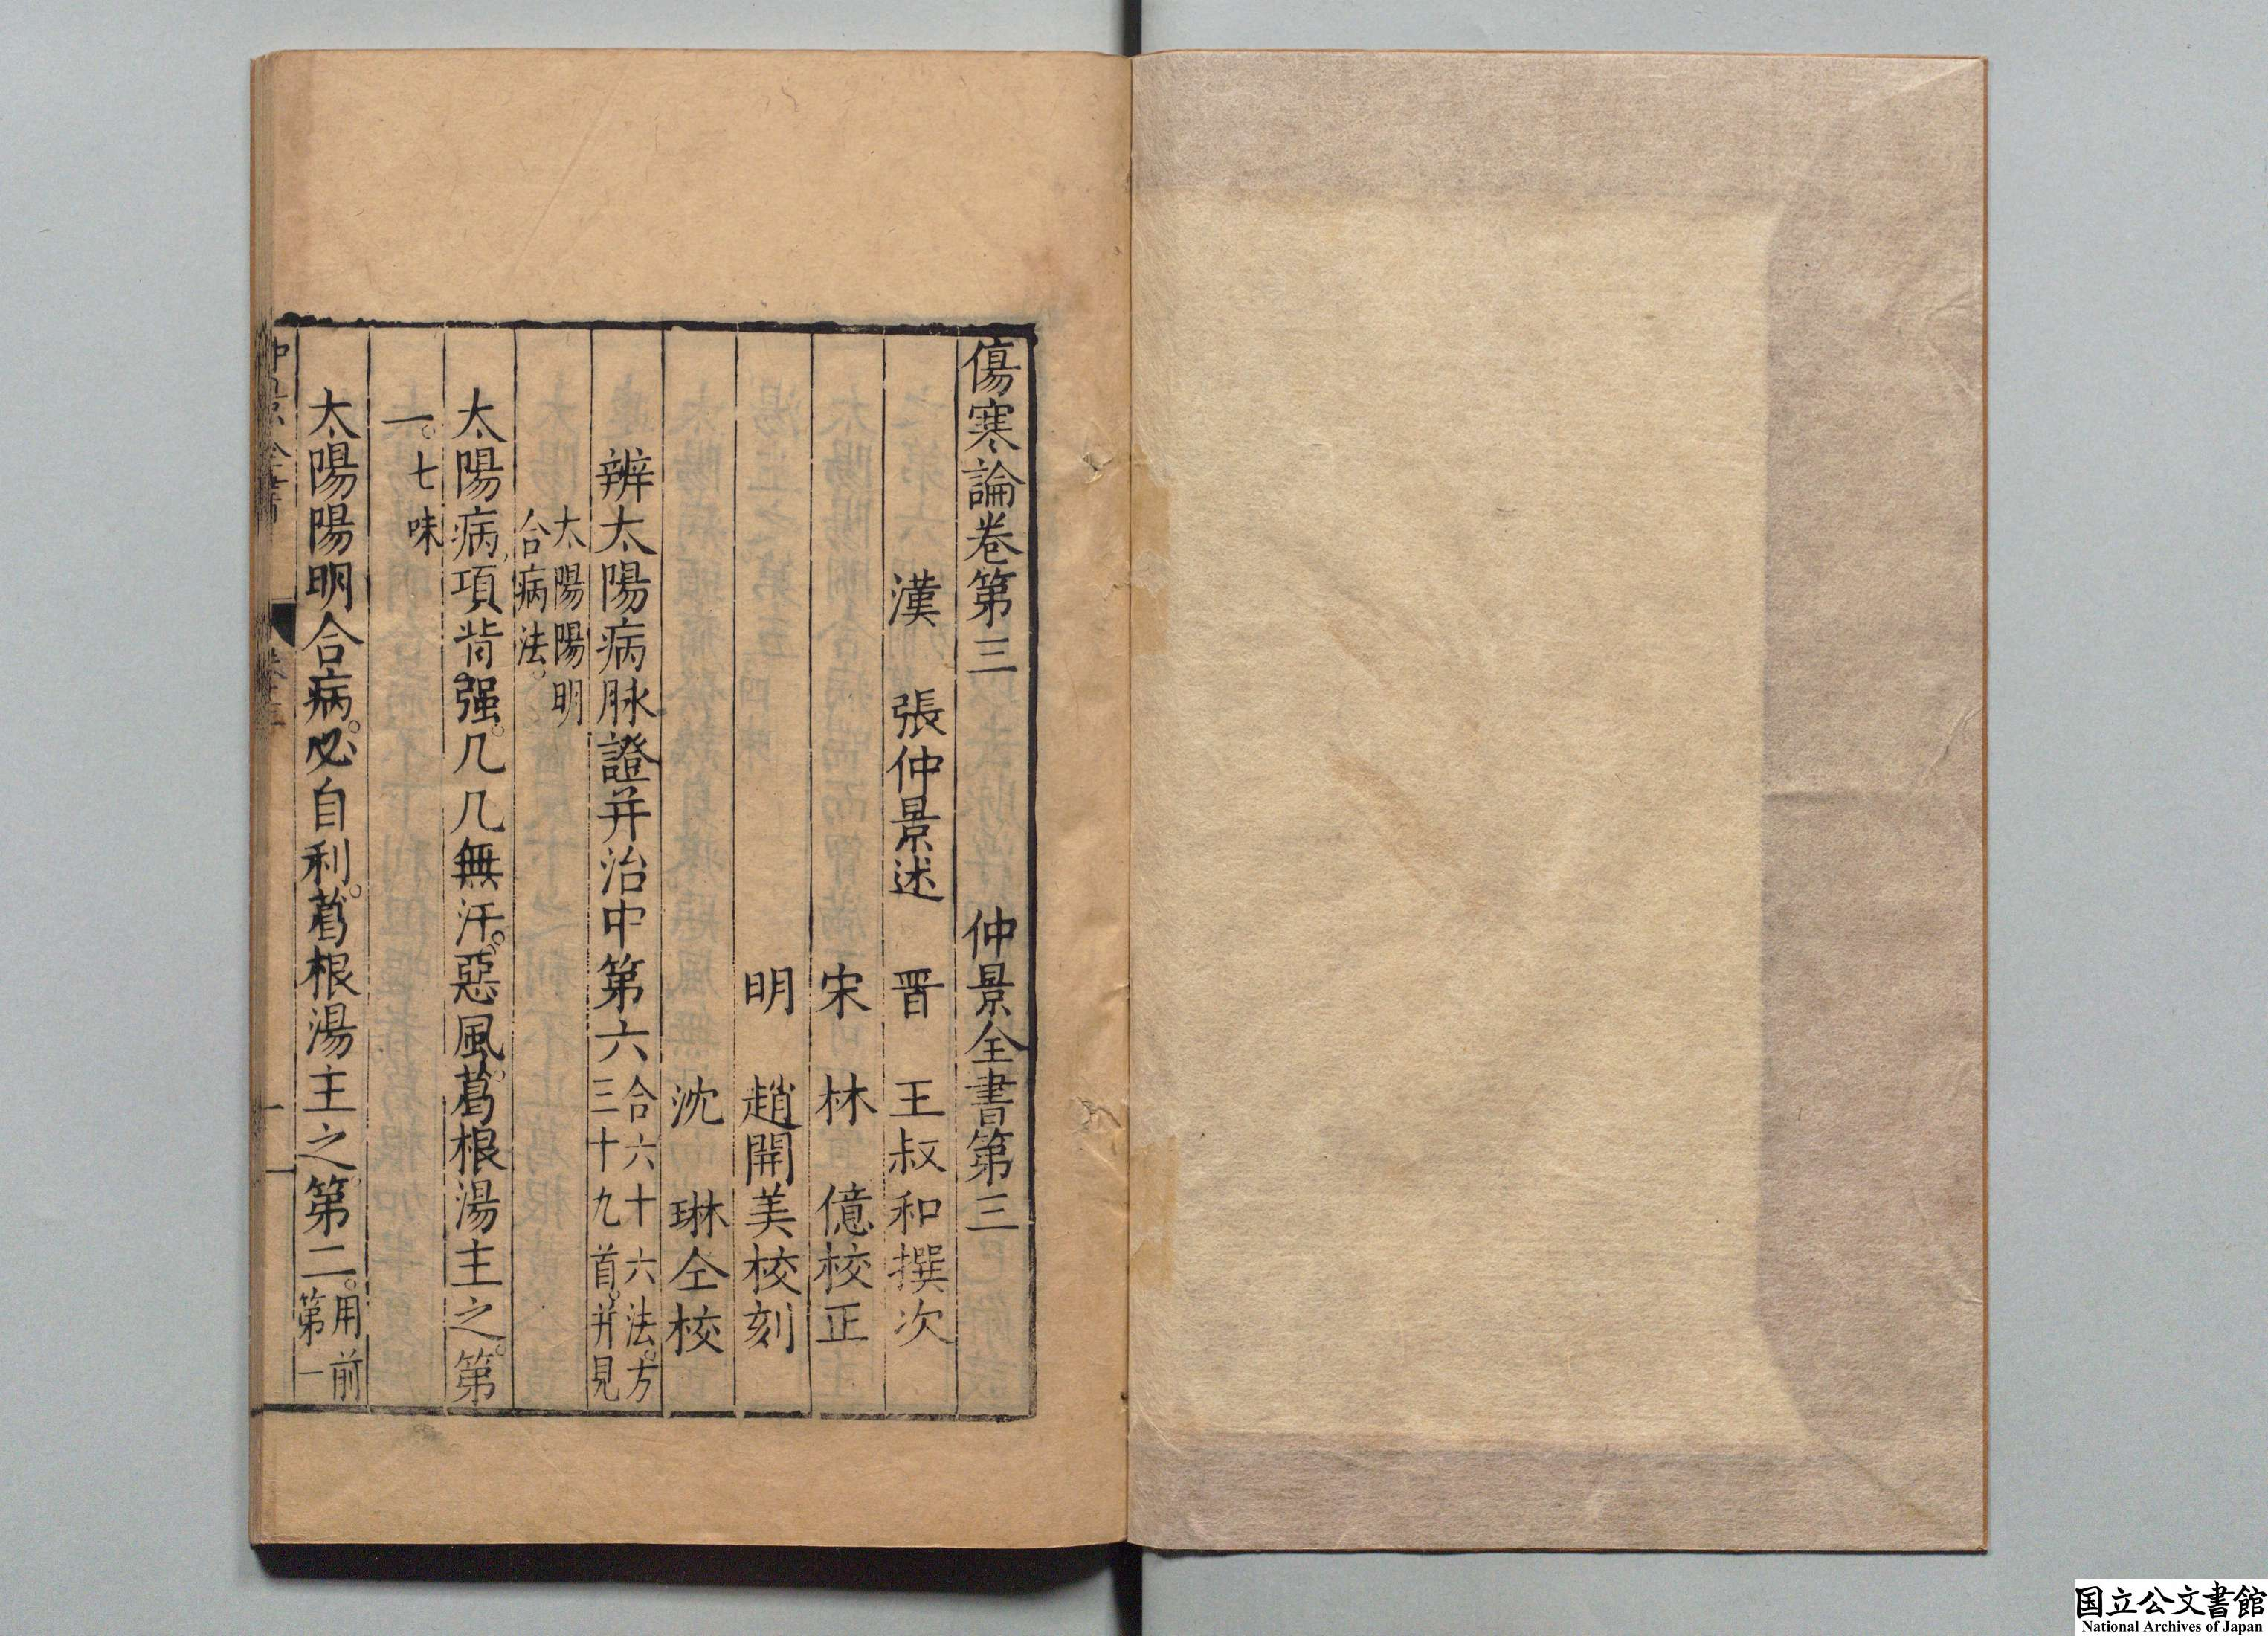 傷寒論卷第三　仲景全書第三
漢　張仲景述　晋　王叔和撰次
宋　林　億校正
明　趙開美校刻
沈　琳仝校
辨太陽病脉證并治中第六
合六十六法。方
三十九首。并見
太陽陽明
合病法。
太陽病項背强。几几無汗。惡風。葛根湯主之。第
一。七味
太陽陽明合病。必自利。葛根湯主之第二。
用前
第一
国立公文書館
National Archives of Japan